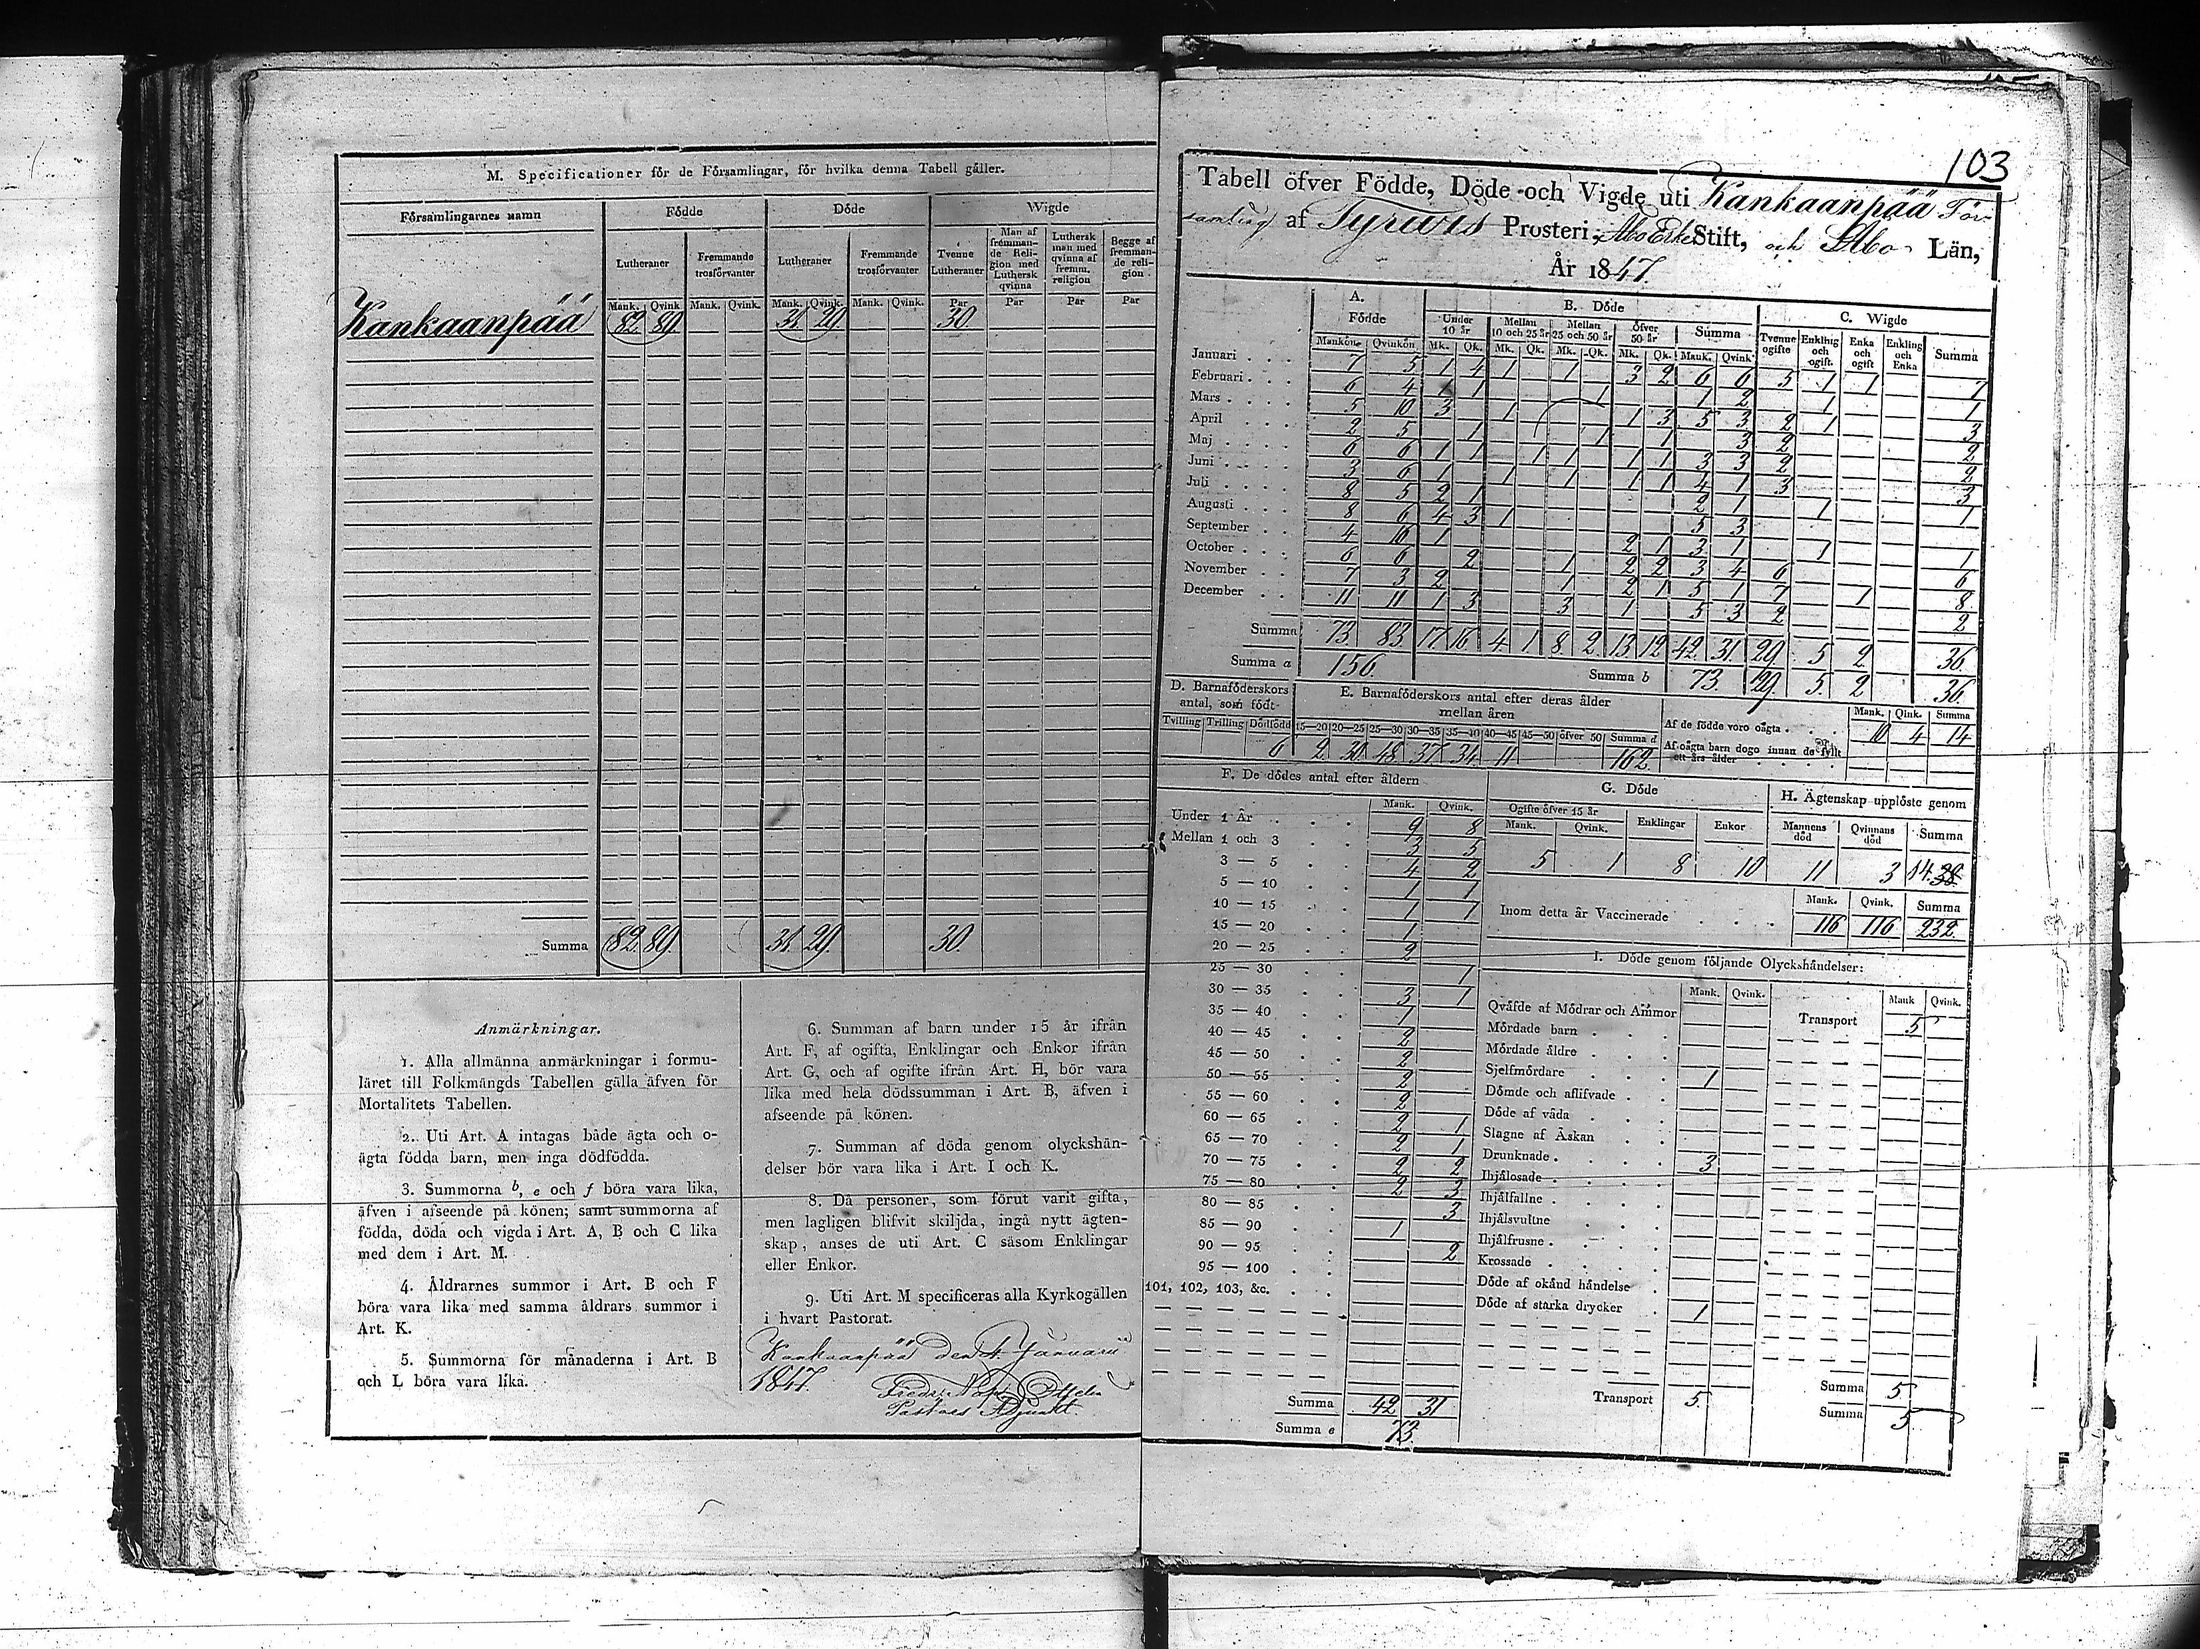 M. Specificationer för de Församlingar, för hvilka denna Tabell gäller.
Församlingarnes namn
Födde
Döde
Wigde
Lutheraner
Fremmande trosförvanter
Lutheraner
Fremmande trosförvanter
Tvenne Lutheraner
Man af fremmande Religion med Luthersk qvinna
Luthersk man med qvinna af fremm. religion
Begge af fremmande religion
Mank. Qvink Mank. Qvink. Mank. Qvink. Mank. Qvink. Par Par Par Par
Kankaanpää 82 89 31 29 30
Summa 82 89 31 29 30
Anmärkningar.
1. Alla allmänna anmärkningar i formu-
läret till Folkmängds Tabellen gälla äfven för
Mortalitets Tabellen.
2. Uti Art. A intagas både ägta och o-
ägta födda barn, men inga dödfödda.
3. Summorna b, e och f böra vara lika,
äfven i afseende på könen; samt summorna af
födda, döda och vigda i Art. A, B och C lika
med dem i Art. M.
4. Åldrarnes summor i Art. B och F
böra vara lika med samma åldrars summor i
Art. K.
5. Summorna för månaderna i Art. B
och L böra vara lika.
6. Summan af barn under 15 år ifrån
Art. F, af ogifta, Enklingar och Enkor ifrån
Art. G, och af ogifte ifrån Art. H, bör vara
lika med hela dödssumman i Art. B, äfven i
afseende på könen.
7. Summan af döda genom olyckshän-
delser bör vara lika i Art. I och K.
8. Då personer, som förut varit gifta,
men lagligen blifvit skiljda, ingå nytt ägten-
skap, anses de uti Art. C såsom Enklingar
eller Enkor.
9. Uti Art. M specificeras alla Kyrkogällen
i hvart Pastorat.
Kankaanpää den Januarii
1847.
Pastors Adjunkt.
103
Tabell öfver Födde, Döde och Vigde uti Kankaanpää För-
samling af Tyrwis Prosteri, Åbo Erke Stift, och Åbo Län,
År 1847.
A. Födde
B. Döde
C. Wigde
Under 10 år
Mellan 10 och 25 år
Mellan 25 och 50 år
Öfver 50 år
Summa
Tvenne ogifte
Enkling och ogift.
Enka och ogift
Enkling och Enka
Summa
Mankön. Qvinkön Mk. Qk. Mk. Qk. Mk. Qk. Mk. Qk. Mank. Qvink.
Januari 7 5 1 4 1 1 3 2 6 6 5 1 1 7
Februari 6 4 1 1 1 1 2 1 1
Mars 5 10 3 1 1 3 5 3 2 1 3
April 2 5 1 1 1 3 2 2
Maj 6 6 1 1 1 1 1 1 3 3 2 2
Juni 3 6 1 1 1 1 1 4 1 3 3
Juli 8 5 2 1 2 1 1 1
Augusti 8 6 4 3 1 5 3
September 4 16 1 2 1 3 1 1 1
October 6 6 2 1 2 2 3 4 6 6
November 7 3 2 1 2 1 5 1 7 1 8
December 11 11 1 3 3 1 5 3 2 2
Summa 73 83 17 16 4 1 8 2 13 12 42 31 29 5 2 36
Summa a 156. Summa b 73 29 5 2 36
D. Barnaföderskors antal, som födt
E. Barnaföderskors antal efter deras ålder mellan åren
Tvilling Trilling Dödfödd 15—20 20—25 25—30 30—35 35—40 40—45 45—50 öfver 50 Summa d
6 2 30 48 37 34 11 162
Mank. Qink. Summa
Af de födde voro oägta 10 4 14
Af oägta barn dogo innan de fyllt ett års ålder
F. De dödes antal efter åldern
Mank. Qvink.
Under 1 År 9 8
Mellan 1 och 3 3 5
3 — 5 4 2
5 — 10 1 1
10 — 15 1 1
15 — 20 1
20 — 25 2
25 — 30 1
30 — 35 3 1
35 — 40 1
40 — 45 2
45 — 50 2
50 — 55 2
55 — 60 2
60 — 65 2 1
65 — 70 2 1
70 — 75 2 2
75 — 80 2 3
80 — 85 3
85 — 90 1
90 — 95 2
95 — 100
101, 102, 103, &c.
Summa 42 31
Summa e 73.
G. Döde
Ogifte öfver 15 år
Mank. Qvink. Enklingar Enkor
5 1 8 10
H. Ägtenskap upplöste genom
Mannens död
Qvinnans död
Summa
11 3 14
Mank. Qvink. Summa
Inom detta år Vaccinerade 116 116 232
I. Döde genom följande Olyckshändelser:
Mank. Qvink. Mank Qvink.
Qväfde af Mödrar och Ammor
Transport 5
Mördade barn
Mördade äldre
Sjelfmördare 1
Dömde och aflifvade
Döde af våda
Slagne af Åskan
Drunknade 3
Ihjälosade
Ihjälfallne
Ihjälsvultne
Ihjälfrusne
Krossade
Döde af okänd händelse
Döde af starka drycker 1
Transport 5
Summa 5
Summa 5